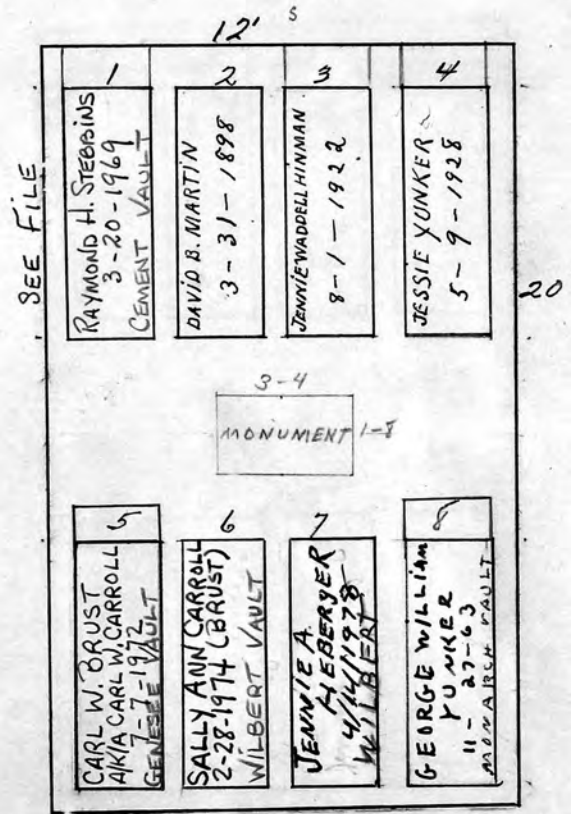 S
12'
SEE FILE
1
RAYMOND H. STEBBINS
3-20-1969
CEMENT VAULT
2
DAVID B. MARTIN
3-31-1898
3
JENNIE WADDELL HINMAN
8-1-1922
4
JESSIE YUNKER
5-9-1928
20
3-4
MONUMENT 1-8
5
CARL W. BRUST
A/K/A CARL W. CARROLL
7-7-1972
GENESEE VAULT
6
SALLY ANN CARROLL
2-28-1974 (BRUST)
WILBERT VAULT
7
JENNIE A.
HEBERGER
4/14/1978
WILBERT
8
GEORGE WILLIAM
YUNKER
11-27-63
MONARCH VAULT